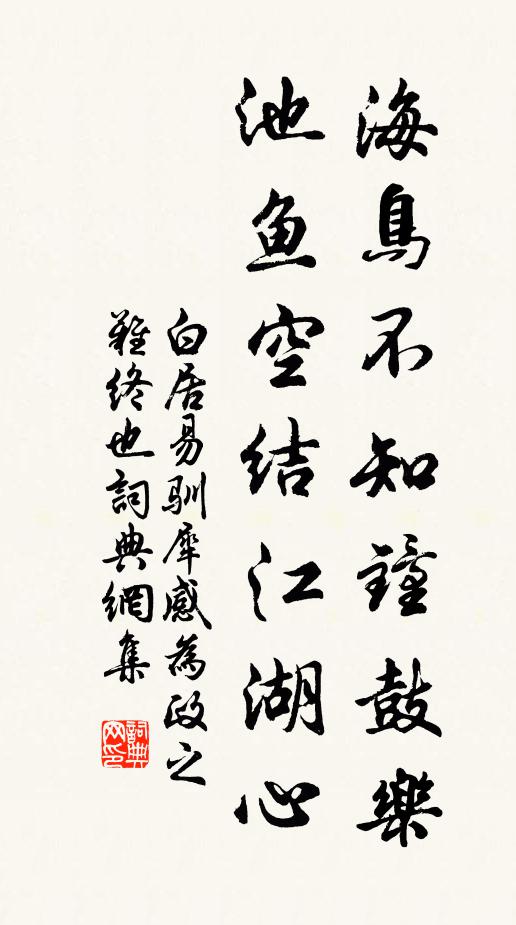 海鳥不知鐘鼓樂
池魚空結江湖心
白居易馴犀感為政之
難終也詞典網集
詞典
网印